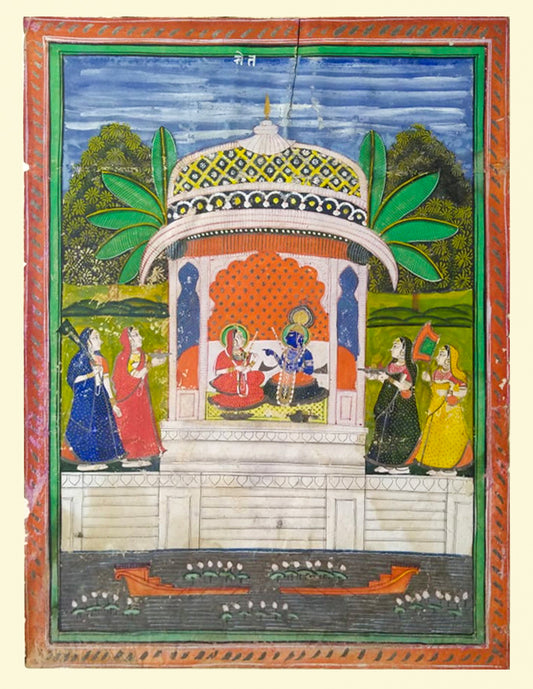 चेत